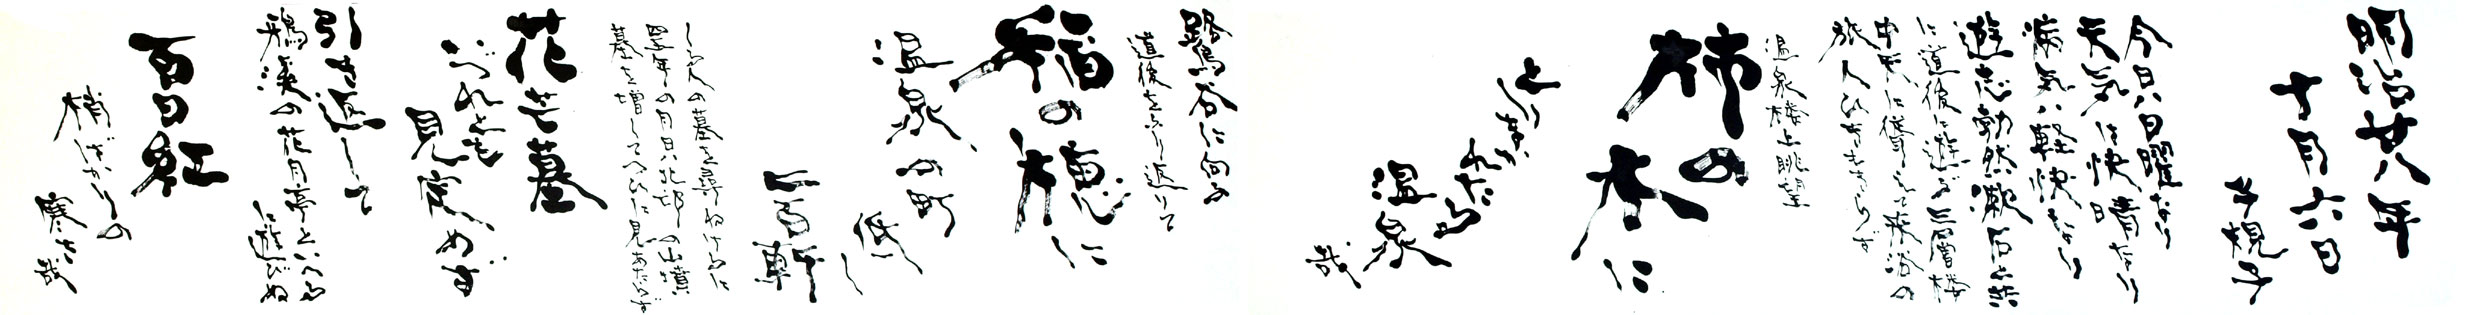 明治廿八年
十月六日
子規子
今日ハ日曜なり
天気は快晴なり
病気ハ軽快なり
遊志勃然漱石と共
に道後に遊ぶ三層楼
中天に聳えて来浴の
旅人ひきもきらず
温泉楼上眺望
柿の
木に
とりまかれたる
温泉
哉
鷺谷に向ふ
道後をふり返りて
稲の穂に
温泉の町
低し
二百軒
しる人の墓を尋ねけるに
四五年の月日ハ北邙の山墳
墓を増してつひに見あたらず
花芒墓
いづれとも
見定めず
引き返して
鴉渓の花月亭といへる
に遊びぬ
百日紅
梢ばかりの
寒さ哉